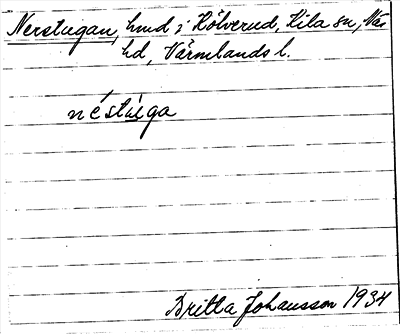 Nerstugan, hmd i Hölverud, Kila sn, Näs
hd, Värmlands l.
néstúga
Britta Johansson 1934